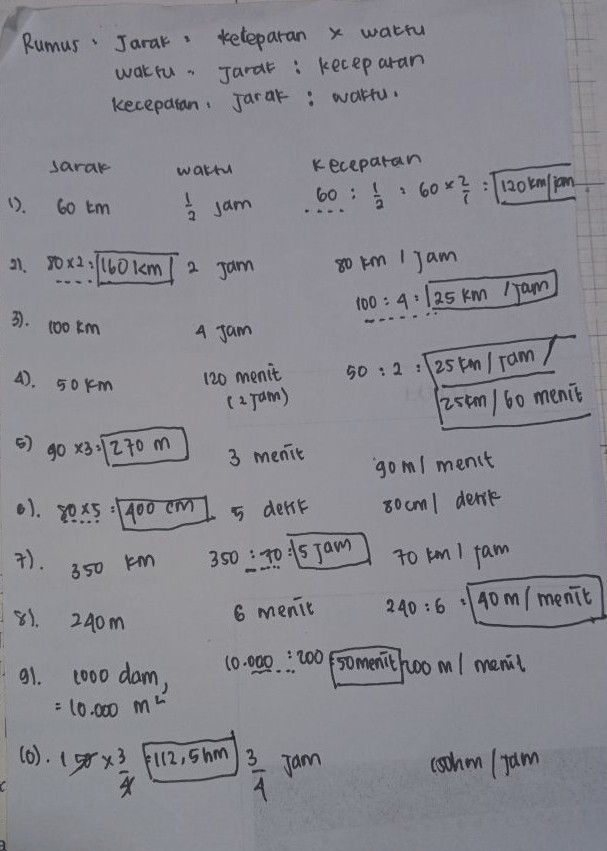 Rumus : Jarak = keceparan x waktu
waktu = Jarak : kecepatan
kecepatan : Jarak : waktu.
Jarak waktu Kecepatan
1). 60 km 1/2 jam 60 : 1/2 : 60 x 2/1 : 120 km/jam
2). 80 x 2 : 160 km 2 jam 80 km / jam
3). 100 km 4 jam 100 : 4 : 25 km / jam
4). 50 km 120 menit (2 jam) 50 : 2 : 25 km / jam /
25 km / 60 menit
5) 90 x 3 : 270 m 3 menit 90 m / menit
6). 80 x 5 : 400 cm 5 detik 80 cm / detik
7). 350 km 350 : 70 : 5 jam 70 km / jam
8). 240 m 6 menit 240 : 6 : 40 m / menit
9). 1000 dam, 10.000 : 200 : 50 menit 200 m / menit
= 10.000 m²
10). 150 x 3/4 : 112,5 hm 3/4 jam 150 hm / jam